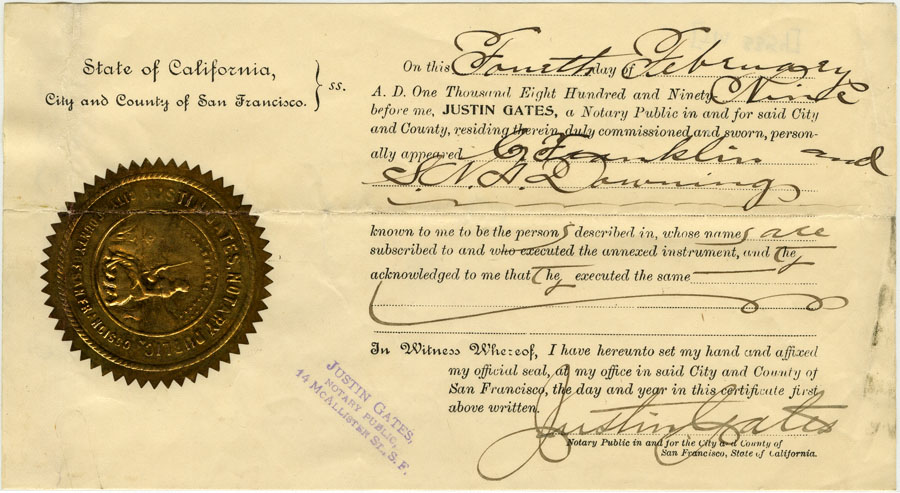 State of California,
City and County of San Francisco. } ss.
On this Fourth day of February
A. D. One Thousand Eight Hundred and Ninety Nine
before me, JUSTIN GATES, a Notary Public in and for said City
and County, residing therein, duly commissioned and sworn, person-
ally appeared C. Franklin and
S. N. A. Downing
known to me to be the persons described in, whose names are
subscribed to and who executed the annexed instrument, and they
acknowledged to me that they executed the same
In Witness Whereof, I have hereunto set my hand and affixed
my official seal, at my office in said City and County of
San Francisco, the day and year in this certificate first
above written.
Justin Gates
Notary Public in and for the City and County of
San Francisco, State of California.
JUSTIN GATES,
NOTARY PUBLIC,
14 MCALLISTER ST., S. F.
JUSTIN GATES, NOTARY PUBLIC,